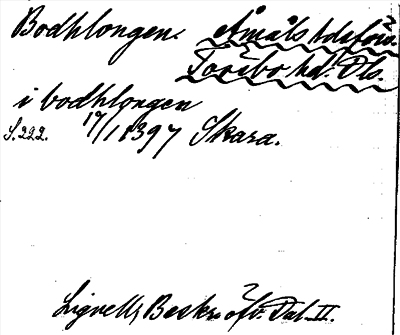 Bodhlongen. Åmåls landsförs.
Torsbo hd. Dls.
i bodhlongen
S. 222. 17/1 1397 Skara.
Lignell, Beskr. öfv. Dal. II.